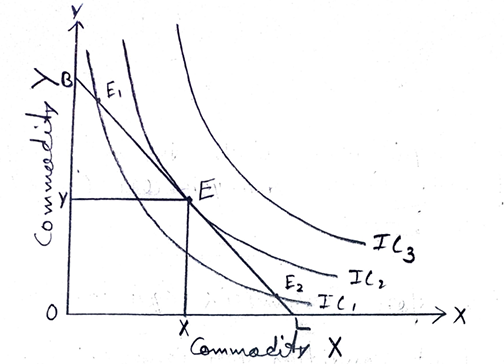 Y
B
E₁
Commodity Y
Y
E
IC₃
IC₂
E₂
IC₁
O
X
L
X
Commodity X